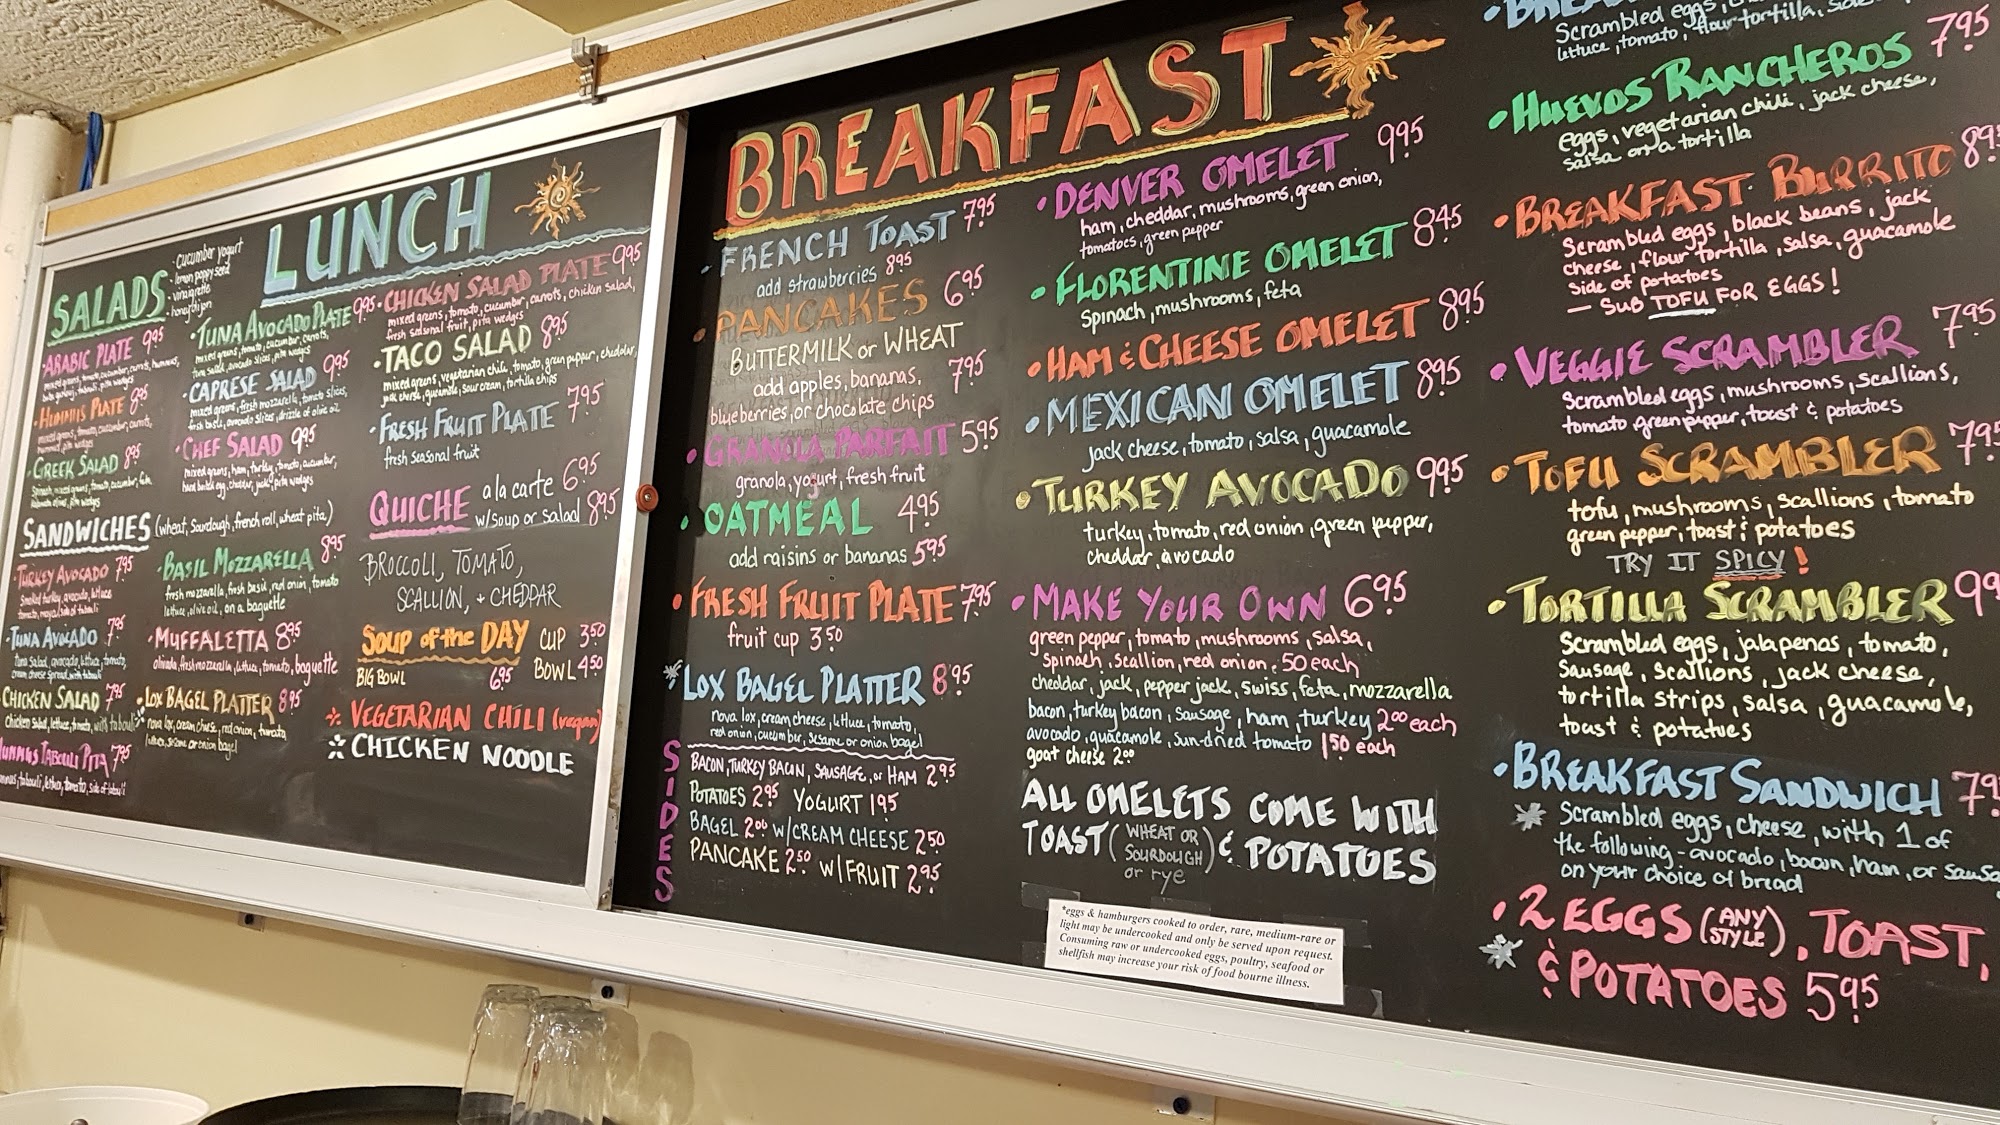 LUNCH
SALADS
- cucumber yogurt
- lemon poppy seed
- vinaigrette
- honey dijon
• ARABIC PLATE 9.95
mixed greens, tomato, cucumber, carrots, hummus,
• HUMMUS PLATE 8.95
mixed greens, tomato, cucumber, carrots,
hummus, pita wedges
• GREEK SALAD 8.95
Spinach, mixed greens, tomato, cucumber, feta,
• TUNA AVOCADO PLATE 9.95
mixed greens, tomato, cucumber, carrots,
tuna salad, avocado slices, pita wedges
• CAPRESE SALAD 9.95
mixed greens, fresh mozzarella, tomato slices,
fresh basil, avocado slices, drizzle of olive oil
• CHEF SALAD 9.95
mixed greens, ham, turkey, tomato, cucumber,
hard boiled egg, cheddar, jack, pita wedges
• CHICKEN SALAD PLATE 9.95
mixed greens, tomato, cucumber, carrots, chicken salad,
fresh seasonal fruit, pita wedges
• TACO SALAD 8.95
mixed greens, vegetarian chili, tomato, green pepper, cheddar,
jack cheese, guacamole, sour cream, tortilla chips
• FRESH FRUIT PLATE 7.95
fresh seasonal fruit
SANDWICHES (wheat, sourdough, french roll, wheat pita)
• TURKEY AVOCADO 7.95
Smoked turkey, avocado, lettuce
tomato, mayo/side of tabouli
• TUNA AVOCADO 7.95
tuna salad, avocado, lettuce, tomato,
cream cheese spread, with tabouli
CHICKEN SALAD 7.95
chicken salad, lettuce, tomato, with tabouli
HUMMUS TABOULI PITA 7.95
hummus, tabouli, lettuce, tomato, side of tabouli
• BASIL MOZZARELLA 8.95
fresh mozzarella, fresh basil, red onion, tomato
lettuce, olive oil, on a baguette
• MUFFALETTA 8.95
olivada, fresh mozzarella, lettuce, tomato, baguette
LOX BAGEL PLATTER 8.95
nova lox, cream cheese, red onion, tomato,
lettuce, sesame or onion bagel
QUICHE a la carte 6.95
w/soup or salad 8.95
BROCCOLI, TOMATO,
SCALLION, + CHEDDAR
SOUP OF THE DAY CUP 3.50
BOWL 4.50
BIG BOWL 6.95
VEGETARIAN CHILI (vegan)
CHICKEN NOODLE
BREAKFAST
• FRENCH TOAST 7.95
add strawberries 8.95
• PANCAKES 6.95
BUTTERMILK or WHEAT
add apples, bananas, 7.95
blueberries, or chocolate chips
• GRANOLA PARFAIT 5.95
granola, yogurt, fresh fruit
• OATMEAL 4.95
add raisins or bananas 5.95
• FRESH FRUIT PLATE 7.95
fruit cup 3.50
* LOX BAGEL PLATTER 8.95
nova lox, cream cheese, lettuce, tomato,
red onion, cucumber, sesame or onion bagel
SIDES
BACON, TURKEY BACON, SAUSAGE, or HAM 2.95
POTATOES 2.95 YOGURT 1.95
BAGEL 2.00 w/CREAM CHEESE 2.50
PANCAKE 2.50 w/FRUIT 2.95
• DENVER OMELET 9.95
ham, cheddar, mushrooms, green onion,
tomatoes, green pepper
• FLORENTINE OMELET 8.45
Spinach, mushrooms, feta
• HAM & CHEESE OMELET 8.95
• MEXICAN OMELET 8.95
jack cheese, tomato, salsa, guacamole
• TURKEY AVOCADO 9.95
turkey, tomato, red onion, green pepper,
cheddar, avocado
• MAKE YOUR OWN 6.95
green pepper, tomato, mushrooms, salsa,
spinach, scallion, red onion .50 each
cheddar, jack, pepper jack, swiss, feta, mozzarella
bacon, turkey bacon, sausage, ham, turkey 2.00 each
avocado, guacamole, sun-dried tomato 1.50 each
goat cheese 2.00
ALL OMELETS COME WITH
TOAST (WHEAT OR SOURDOUGH or rye) & POTATOES
*eggs & hamburgers cooked to order, rare, medium-rare or
light may be undercooked and only be served upon request.
Consuming raw or undercooked eggs, poultry, seafood or
shellfish may increase your risk of food bourne illness.
Scrambled eggs,
lettuce, tomato, flour tortilla,
• HUEVOS RANCHEROS 7.95
eggs, vegetarian chili, jack cheese,
salsa on a tortilla
• BREAKFAST BURRITO 8.95
Scrambled eggs, black beans, jack
cheese, flour tortilla, salsa, guacamole
side of potatoes
— SUB TOFU FOR EGGS!
• VEGGIE SCRAMBLER 7.95
Scrambled eggs, mushrooms, scallions,
tomato, green pepper, toast & potatoes
• TOFU SCRAMBLER 7.95
tofu, mushrooms, scallions, tomato
green pepper, toast & potatoes
TRY IT SPICY!
• TORTILLA SCRAMBLER 9.9
Scrambled eggs, jalapenos, tomato,
sausage, scallions, jack cheese,
tortilla strips, salsa, guacamole,
toast & potatoes
• BREAKFAST SANDWICH 7.9
* Scrambled eggs, cheese, with 1 of
the following - avocado, bacon, ham, or sausa
on your choice of bread
• 2 EGGS (ANY STYLE), TOAST,
* & POTATOES 5.95